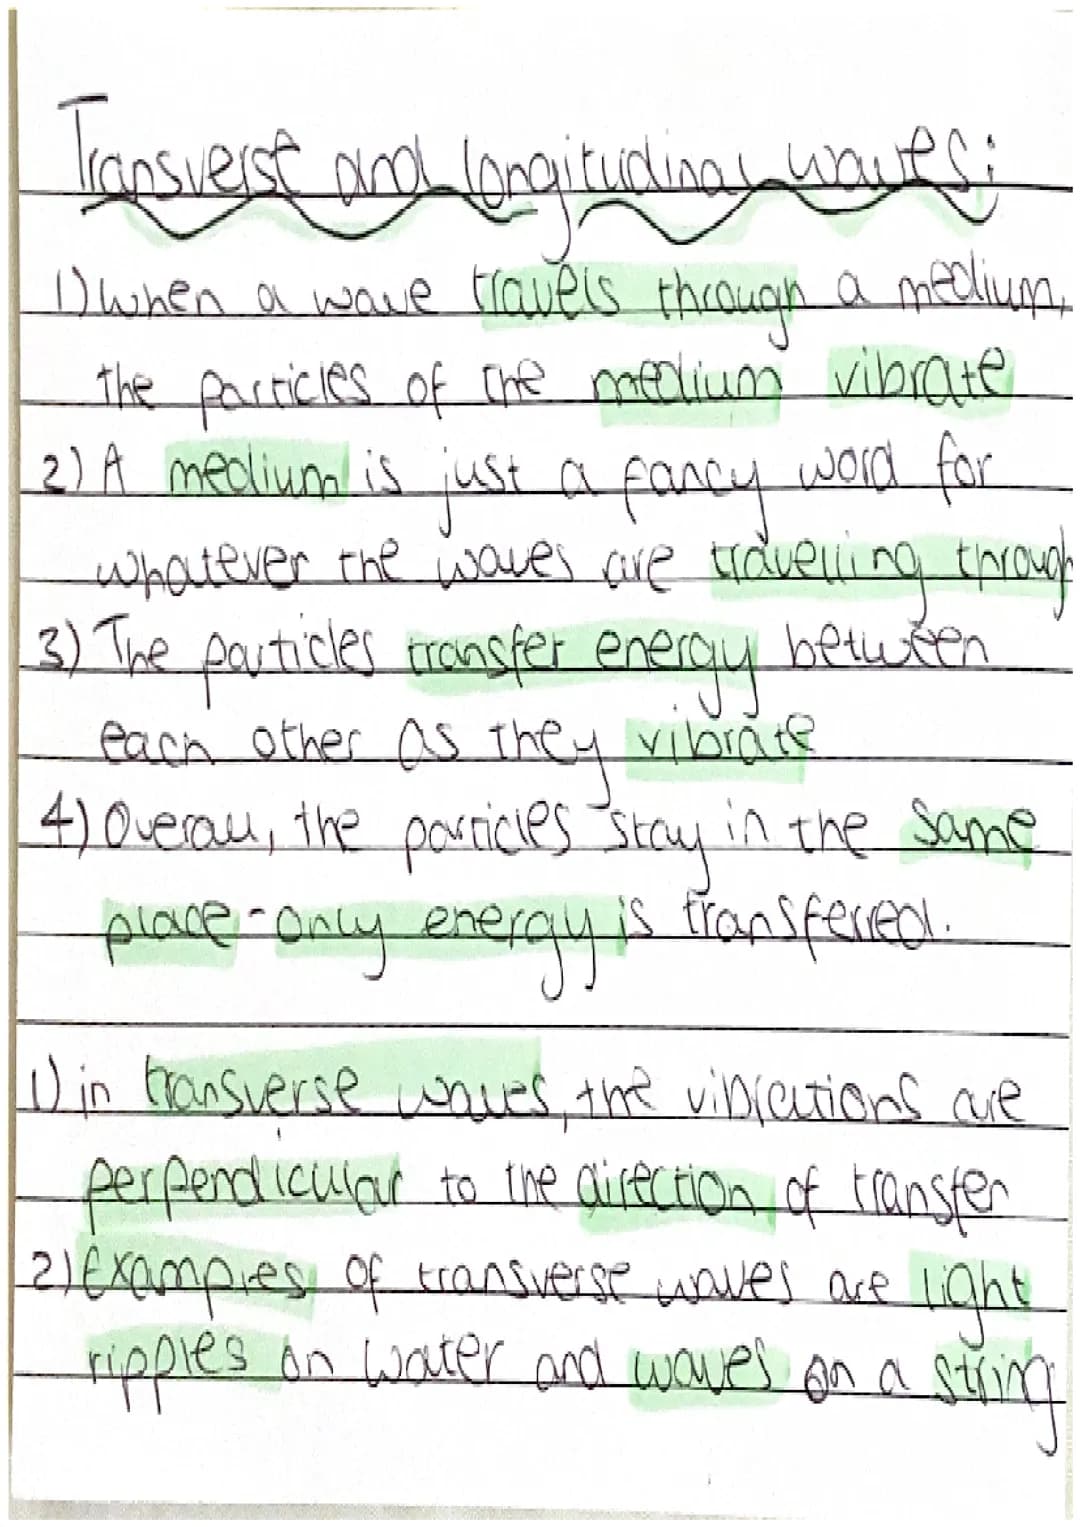 Transverse and longitudinal waves:
1) when a wave travels through a medium,
the particles of the medium vibrate
2) A medium is just a fancy word for
whatever the waves are travelling through
3) The particles transfer energy between
each other as they vibrate
4) Overall, the particles stay in the same
place - only energy is transferred.
1) in transverse waves, the vibrations are
perpendicular to the direction of transfer
2) Examples of transverse waves are light
ripples on water and waves on a string